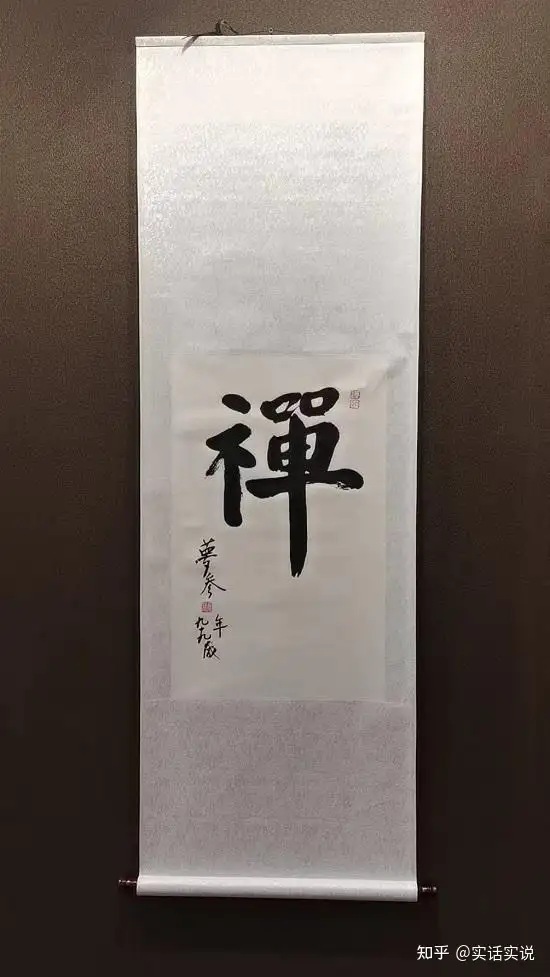 禪
夢參
年九十九歲
知乎 @实话实说